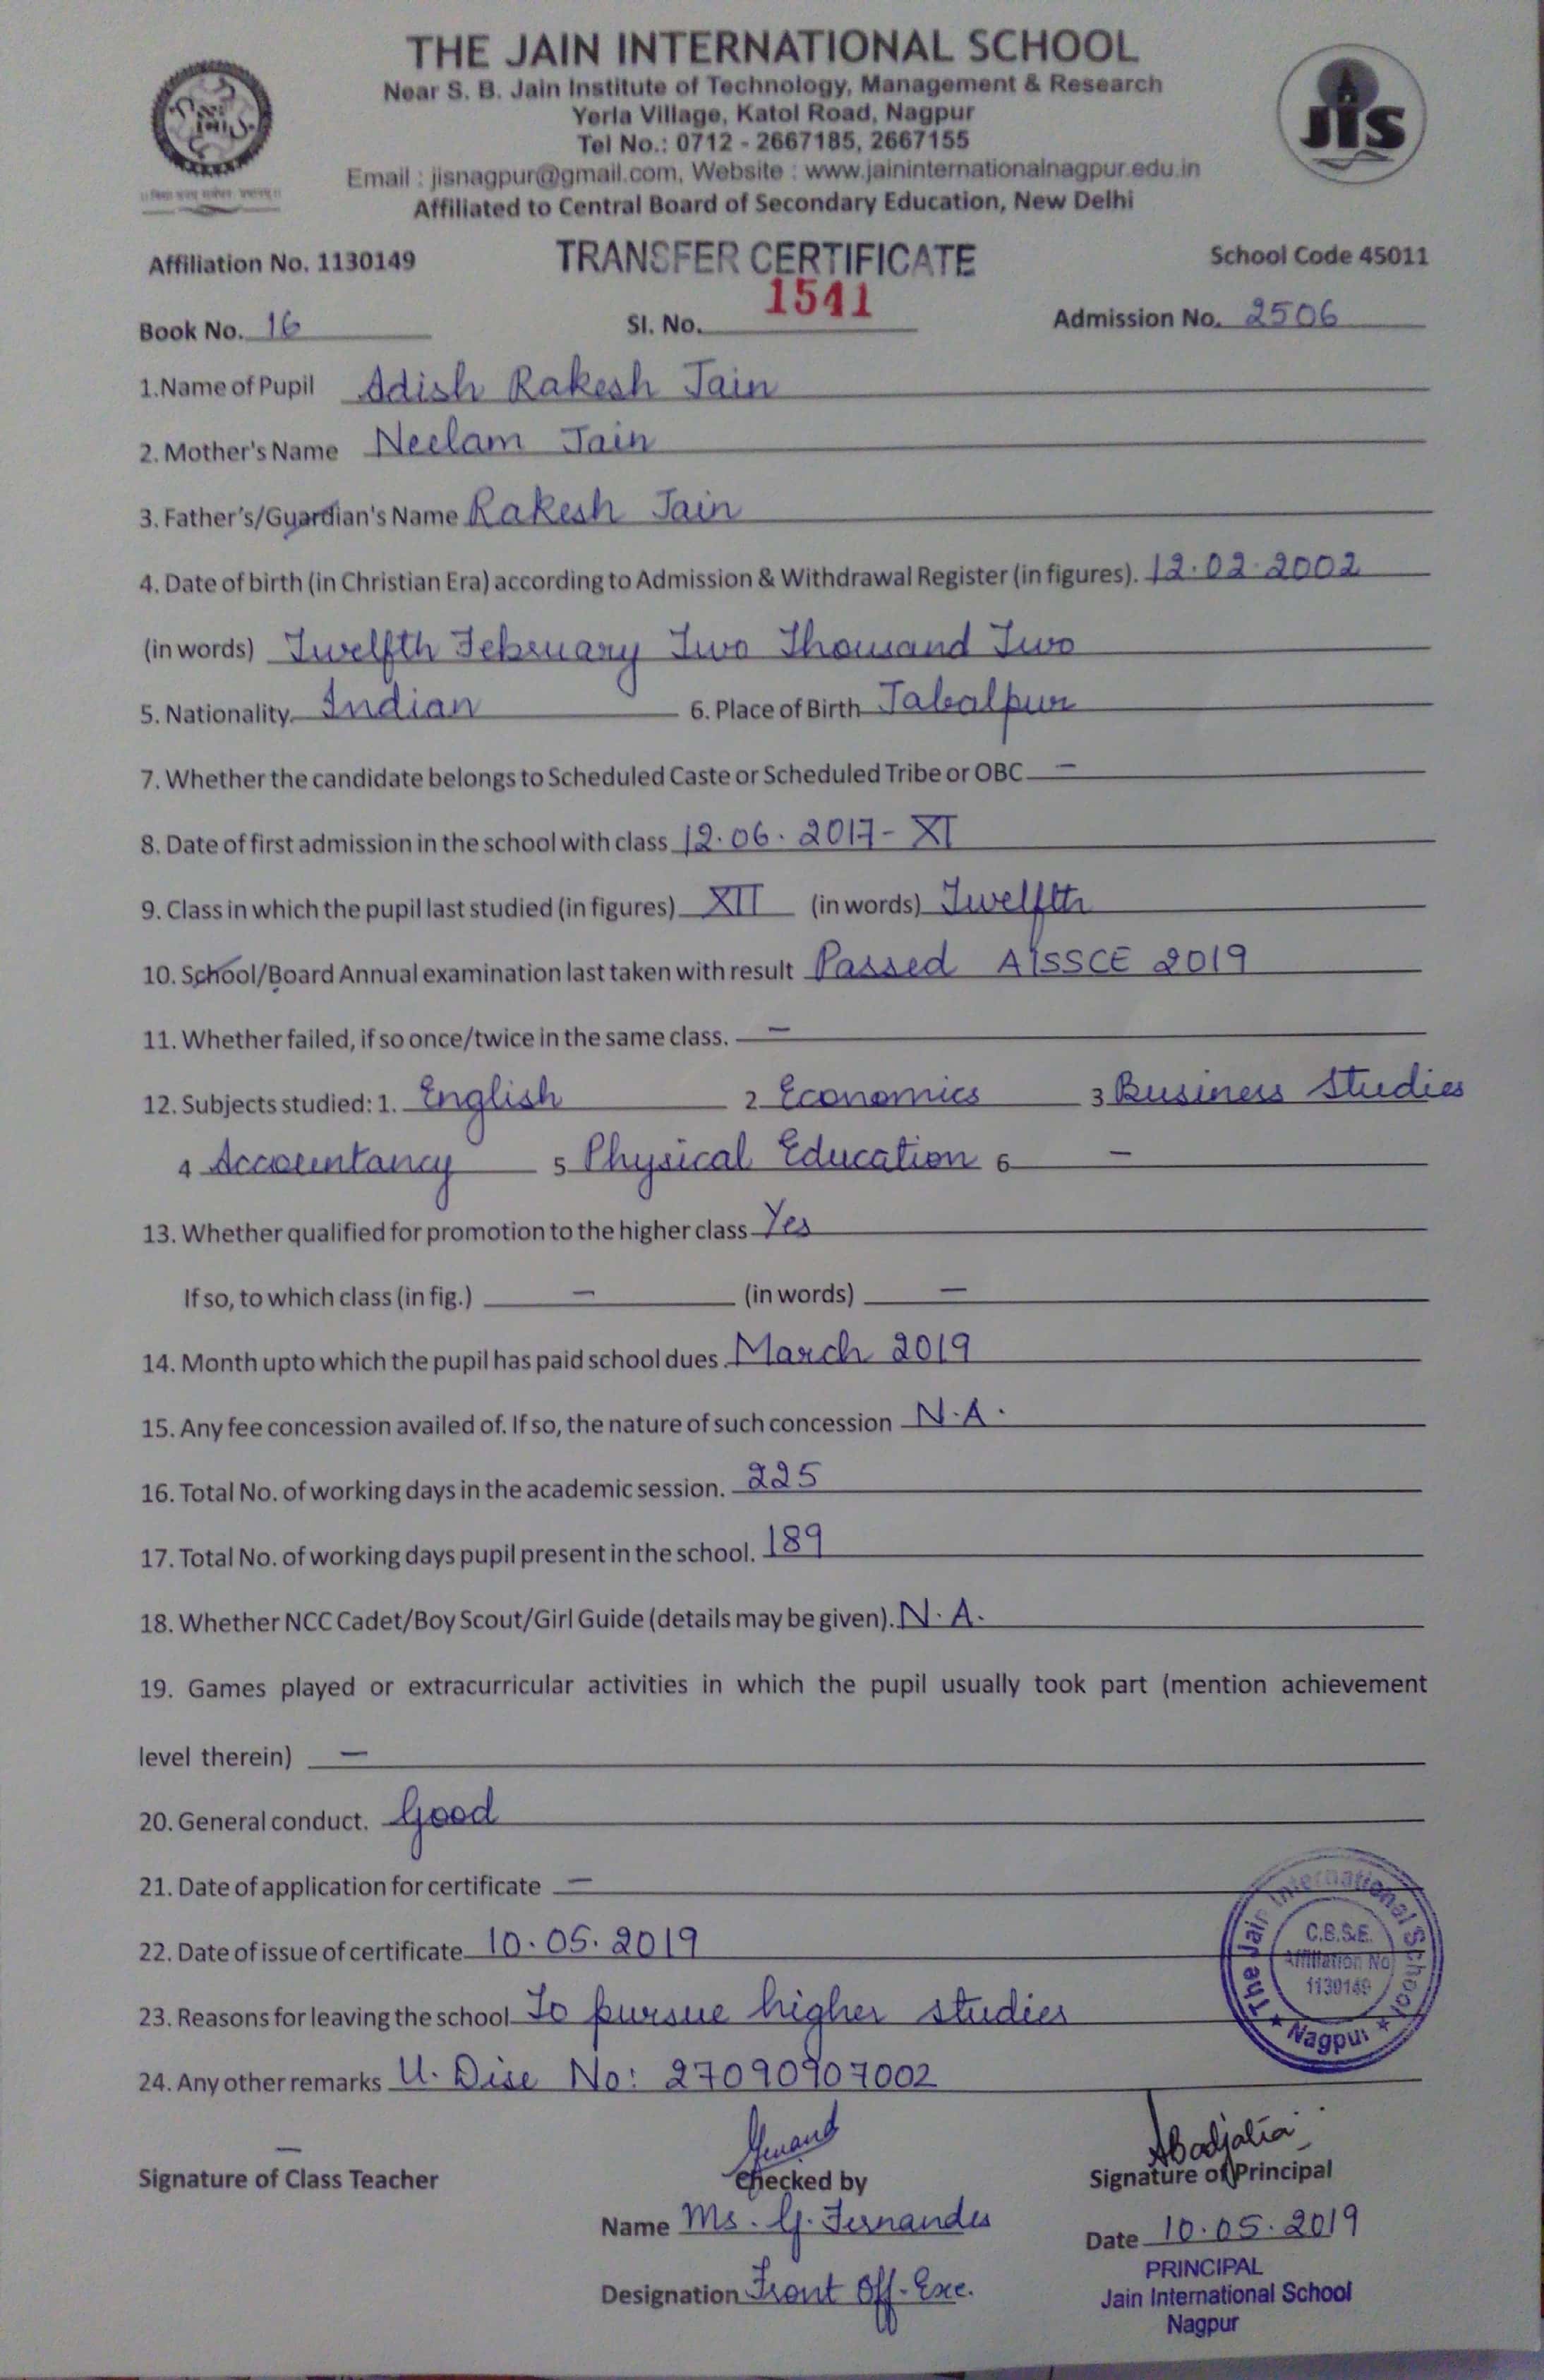 THE JAIN INTERNATIONAL SCHOOL
Near S. B. Jain Institute of Technology, Management & Research
Yerla Village, Katol Road, Nagpur
Tel No.: 0712 - 2667185, 2667155
Email : jisnagpur@gmail.com, Website : www.jaininternationalnagpur.edu.in
Affiliated to Central Board of Secondary Education, New Delhi
JIS
Affiliation No. 1130149 TRANSFER CERTIFICATE School Code 45011
Book No. 16 Sl. No. 1541 Admission No. 2506
1.Name of Pupil Adish Rakesh Jain
2. Mother's Name Neelam Jain
3. Father's/Guardian's Name Rakesh Jain
4. Date of birth (in Christian Era) according to Admission & Withdrawal Register (in figures). 12.02.2002
(in words) Twelfth February Two Thousand Two
5. Nationality Indian 6. Place of Birth Jabalpur
7. Whether the candidate belongs to Scheduled Caste or Scheduled Tribe or OBC —
8. Date of first admission in the school with class 12.06.2017 - XI
9. Class in which the pupil last studied (in figures) XII (in words) Twelfth
10. School/Board Annual examination last taken with result Passed AISSCE 2019
11. Whether failed, if so once/twice in the same class. —
12. Subjects studied: 1. English 2 Economics 3 Business Studies
4 Accountancy 5 Physical Education 6 —
13. Whether qualified for promotion to the higher class Yes
If so, to which class (in fig.) — (in words) —
14. Month upto which the pupil has paid school dues. March 2019
15. Any fee concession availed of. If so, the nature of such concession N.A.
16. Total No. of working days in the academic session. 225
17. Total No. of working days pupil present in the school. 189
18. Whether NCC Cadet/Boy Scout/Girl Guide (details may be given). N.A.
19. Games played or extracurricular activities in which the pupil usually took part (mention achievement
level therein) —
20. General conduct. Good
21. Date of application for certificate —
22. Date of issue of certificate 10.05.2019
23. Reasons for leaving the school To pursue higher studies
24. Any other remarks U. Dise No: 27090907002
The Jain International School
C.B.S.E.
Affiliation No
1130149
★ Nagpur ★
—
Signature of Class Teacher Checked by Signature of Principal
Name Ms. G. Fernandes Date 10.05.2019
PRINCIPAL
Designation Front Off-Exe. Jain International School
Nagpur